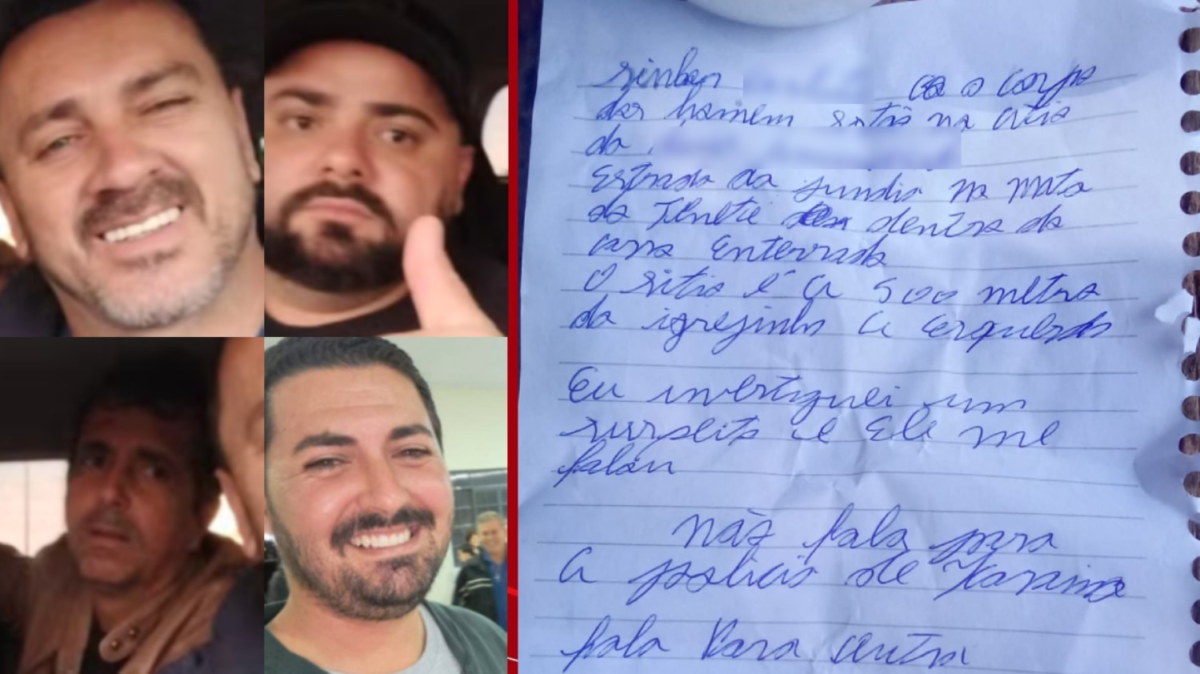 o corpo
dos homem na
da
Estrada da na mata
da dentro da
casa Enterrado
O sitio é a 500 metro
da igrejinha a esquerda
Eu investiguei um
suspeito e Ele me
falou
não fala para
a policia de Icaraima
fala Para outra